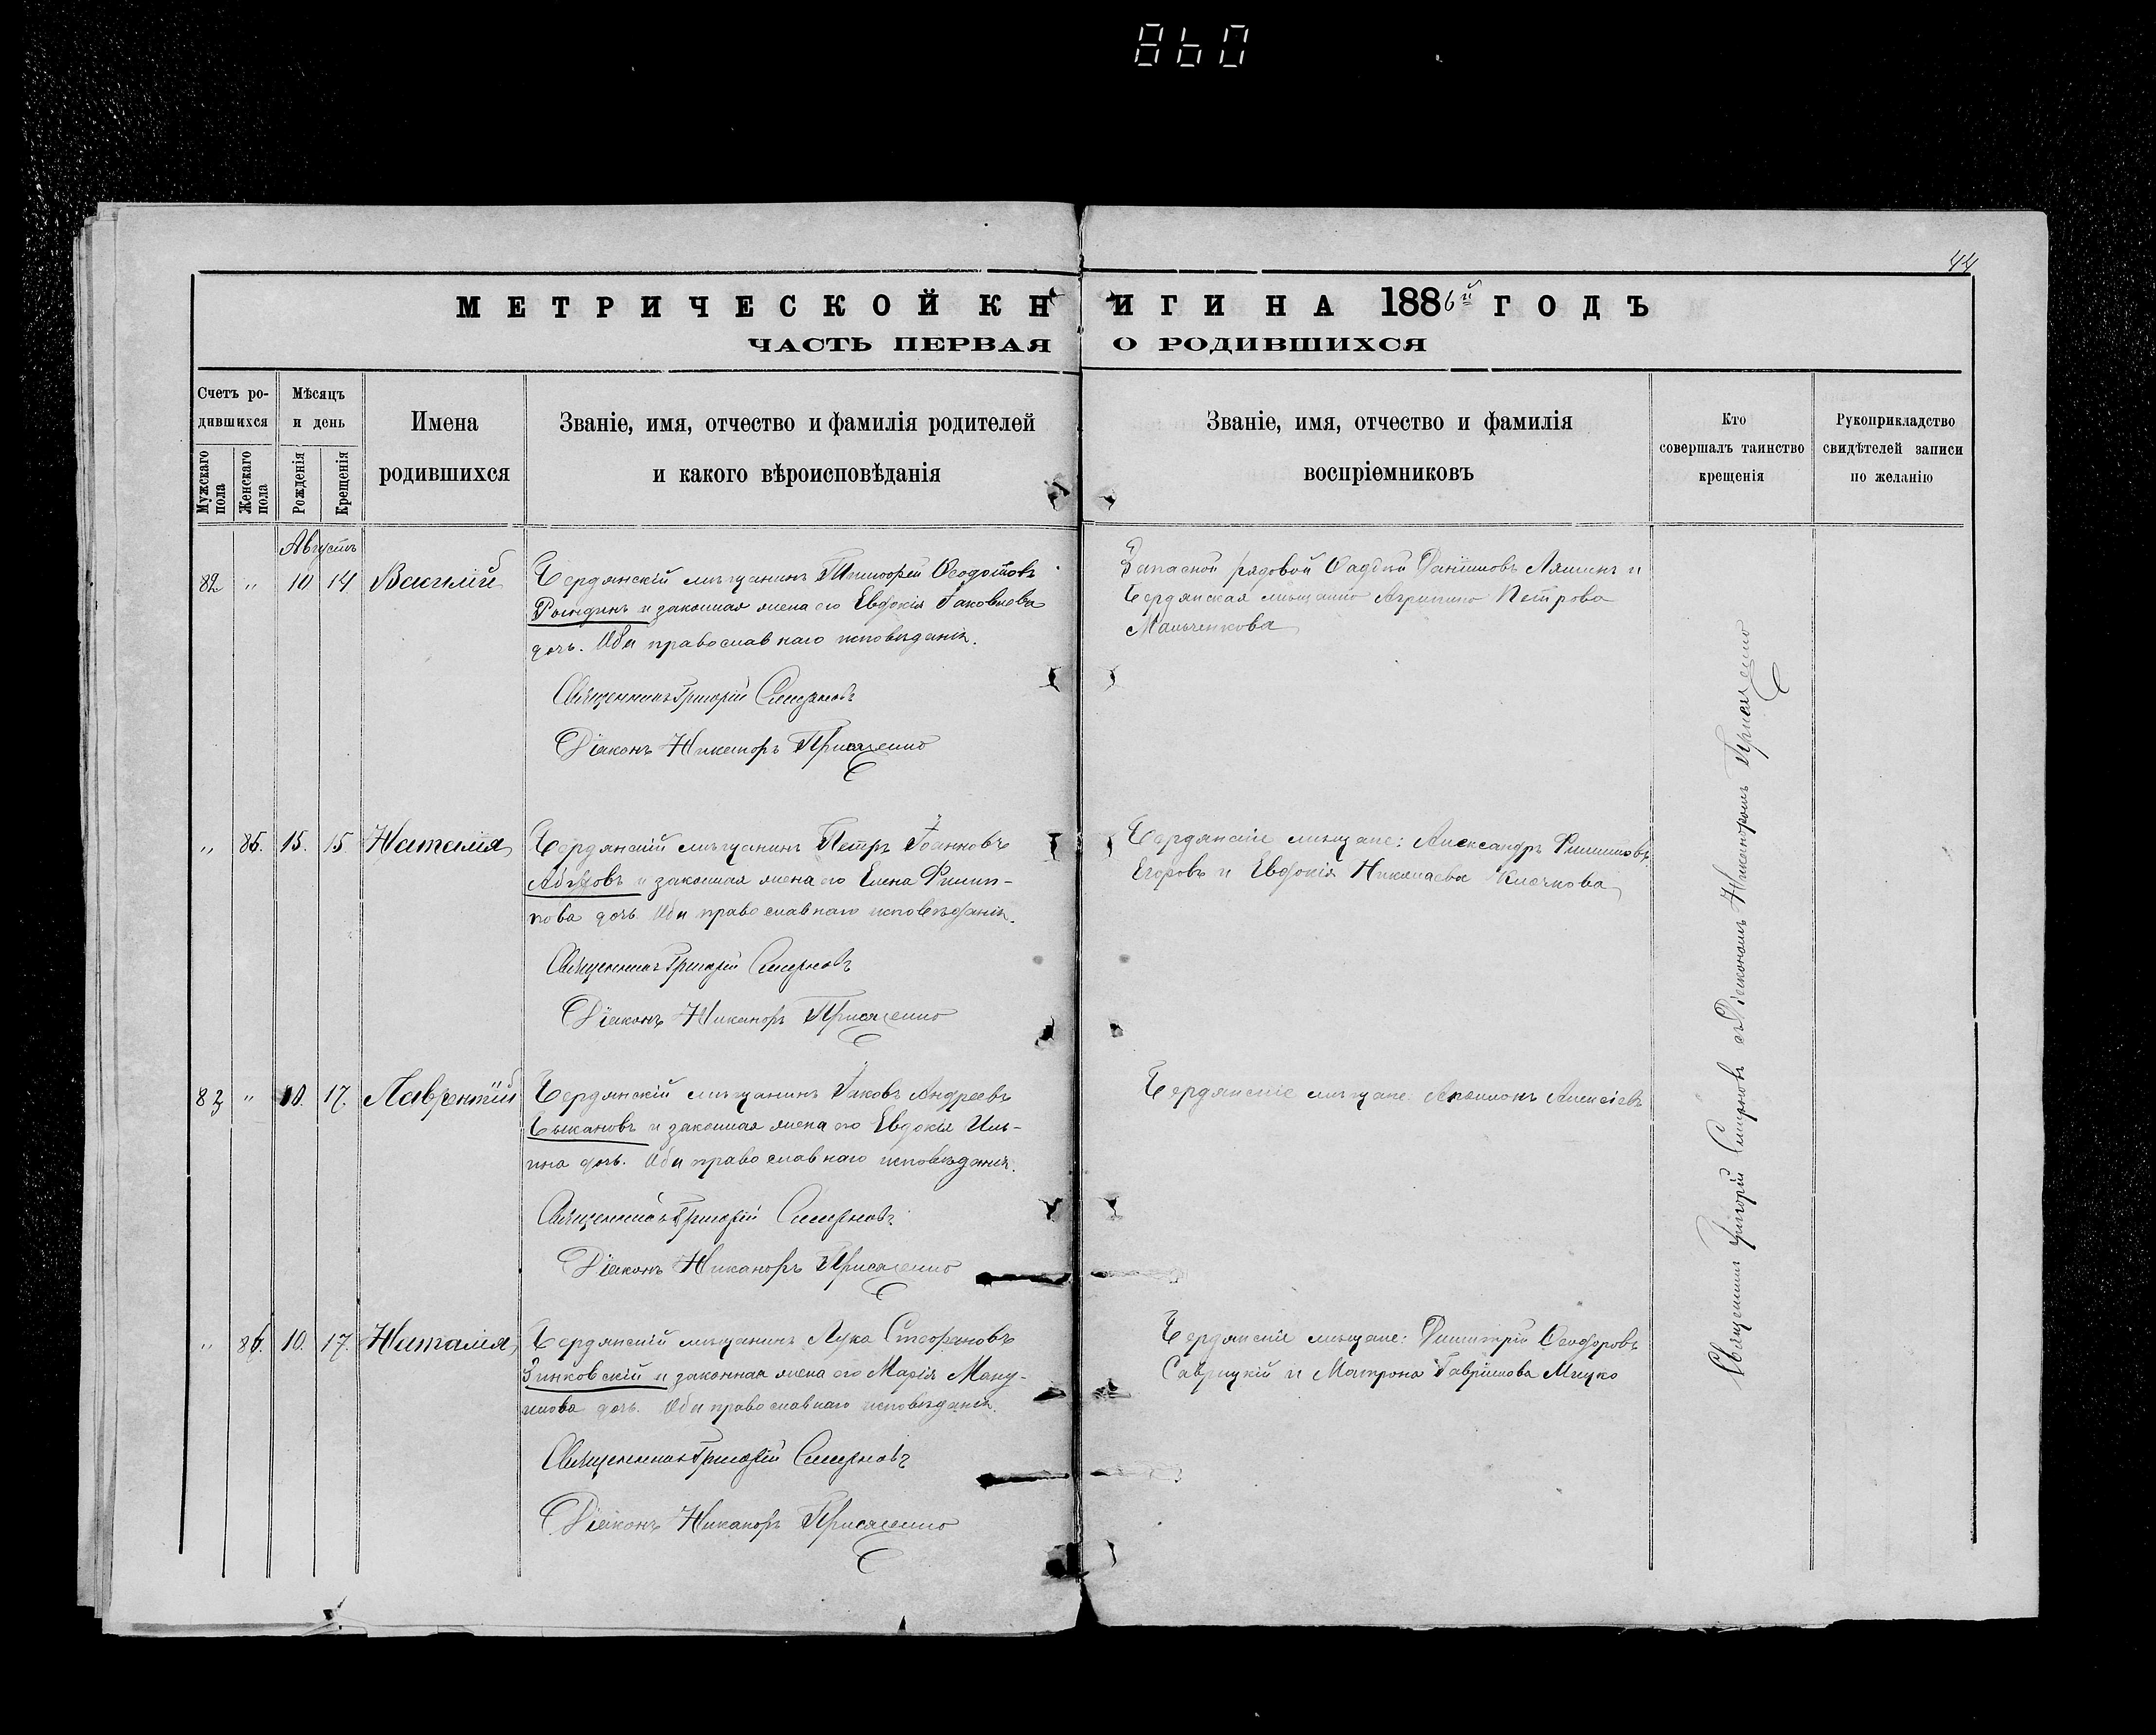 860
44
МЕТРИЧЕСКОЙ КНИГИ НА 1886й ГОДЪ
ЧАСТЬ ПЕРВАЯ О РОДИВШИХСЯ
Счетъ родившихся
Мужскаго пола
Женскаго пола
Мѣсяцъ и день
Рожденія
Крещенія
Имена
родившихся
Званіе, имя, отчество и фамилія родителей
и какого вѣроисповѣданія
Званіе, имя, отчество и фамилія
воспріемниковъ
Кто
совершалъ таинство
крещенія
Рукоприкладство
свидѣтелей записи
по желанію
Августъ
82 " 10 14 Василій
Бердянскій мѣщанинъ Тимофей Ѳеодотовъ
и законная жена его Евдокія Іаковлева
дочь. Оба православнаго исповѣданія.
Священникъ Григорій Смирновъ
Діаконъ Никаноръ Присяженко
Запасной рядовой Фаддей Даніиловъ Ляшинъ и
Бердянская мѣщанка Агрипина Петрова
Мальченкова
" 85. 15. 15 Наталія
Бердянскій мѣщанинъ Петръ Іоанновъ
и законная жена его Елена Филип-
пова дочь. Оба православнаго исповѣданія.
Священникъ Григорій Смирновъ
Діаконъ Никаноръ Присяженко
Бердянскіе мѣщане: Александръ Филиповъ
Егоровъ и Евдокія Николаева Клочкова
83 " 10. 17. Лаврентій
Бердянскій мѣщанинъ Іаковъ Андреевъ
Цыкановъ и законная жена его Евдокія Иль-
ина дочь. Оба православнаго исповѣданія.
Священникъ Григорій Смирновъ
Діаконъ Никаноръ Присяженко
Бердянскіе мѣщане: Алексіевъ
" 86. 10. 17. Наталія
Бердянскій мѣщанинъ Лука Стефановъ
Зинковскій и законная жена его Марія Ману-
илова дочь. Оба православнаго исповѣданія.
Священникъ Григорій Смирновъ
Діаконъ Никаноръ Присяженко
Бердянскіе мѣщане: Димитрій Ѳеодоровъ
Саврицкій и Матрона Гавріилова Мицко
Священникъ Григорій Смирновъ съ Діакономъ Никаноромъ Присяженко